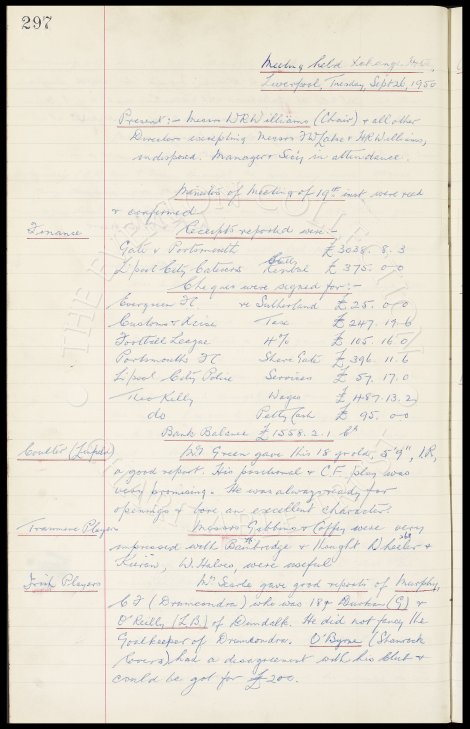 297
Meeting held Exchange Hotel,
Liverpool, Tuesday Sept 26, 1950
Present:- Messrs W R Williams (Chair) & all other
Directors excepting Messrs & H R Williams,
indisposed. Manager & Sec'y in attendance.
Minutes of Meeting of 19th inst. were read
& confirmed
Finance Receipts reported were:-
Gate v Portsmouth £3038. 8. 3
L'pool City Caterers Rental £375. 0-0
Cheques were signed for:-
Evergreen FC re Sutherland £25. 0-0
Customs & Excise Tax £247. 19. 6
Football League 4% £105. 16. 0
Portsmouth FC Share Gate £396. 11. 6
L'pool City Police Services £57. 17. 0
Theo Kelly Wages £487. 13. 2
do Petty Cash £95. 0-0
Bank Balance £1558. 2. 1
Coulter Mr Green gave this 18 yr old, 5'9", I.R,
a good report. His positional & C.F. play was
very promising. He was always ready for
openings & bore an excellent character.
Tranmere Players Messrs Gibbins & Coffey were very
impressed with Bainbridge & thought Wheeler &
Kieran, W. Halves, were useful
Irish Players Mr Searle gave good reports of Murphy,
C F (Drumcondra) who was 18 & (G) &
O'Reilly (L.B.) of Dundalk. He did not fancy the
Goalkeeper of Drumcondra. O'Byrne (Shamrock
Rovers) had a disagreement with his Club &
could be got for £200.